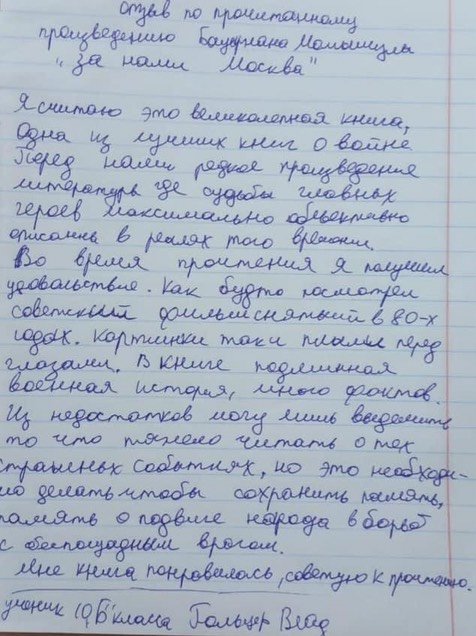 отзыв по прочитанному
произведению Бауржана Момышулы
"За нами Москва"
Я считаю это великолепная книга,
Одна из лучших книг о войне
Перед нами редкое произведение
литературы где судьбы главных
героев максимально объективно
описанны в реалях того времени.
Во время прочтения я получил
удовольствие. Как будто посмотрел
советский фильм снятый в 80-х
годах. Картинки так и плыли перед
глазами. В книге подлинная
военная история, много фактов.
Из недостатков могу лишь выделить
то что тяжело читать о тех
страшных событиях, но это необходи-
мо делать чтобы сохранить память,
память о подвиге народа в борьбе
с беспощадным врагом.
Мне книга понравилась, советую к прочтению.
ученик 10 "Б" класса Гольцер Влад